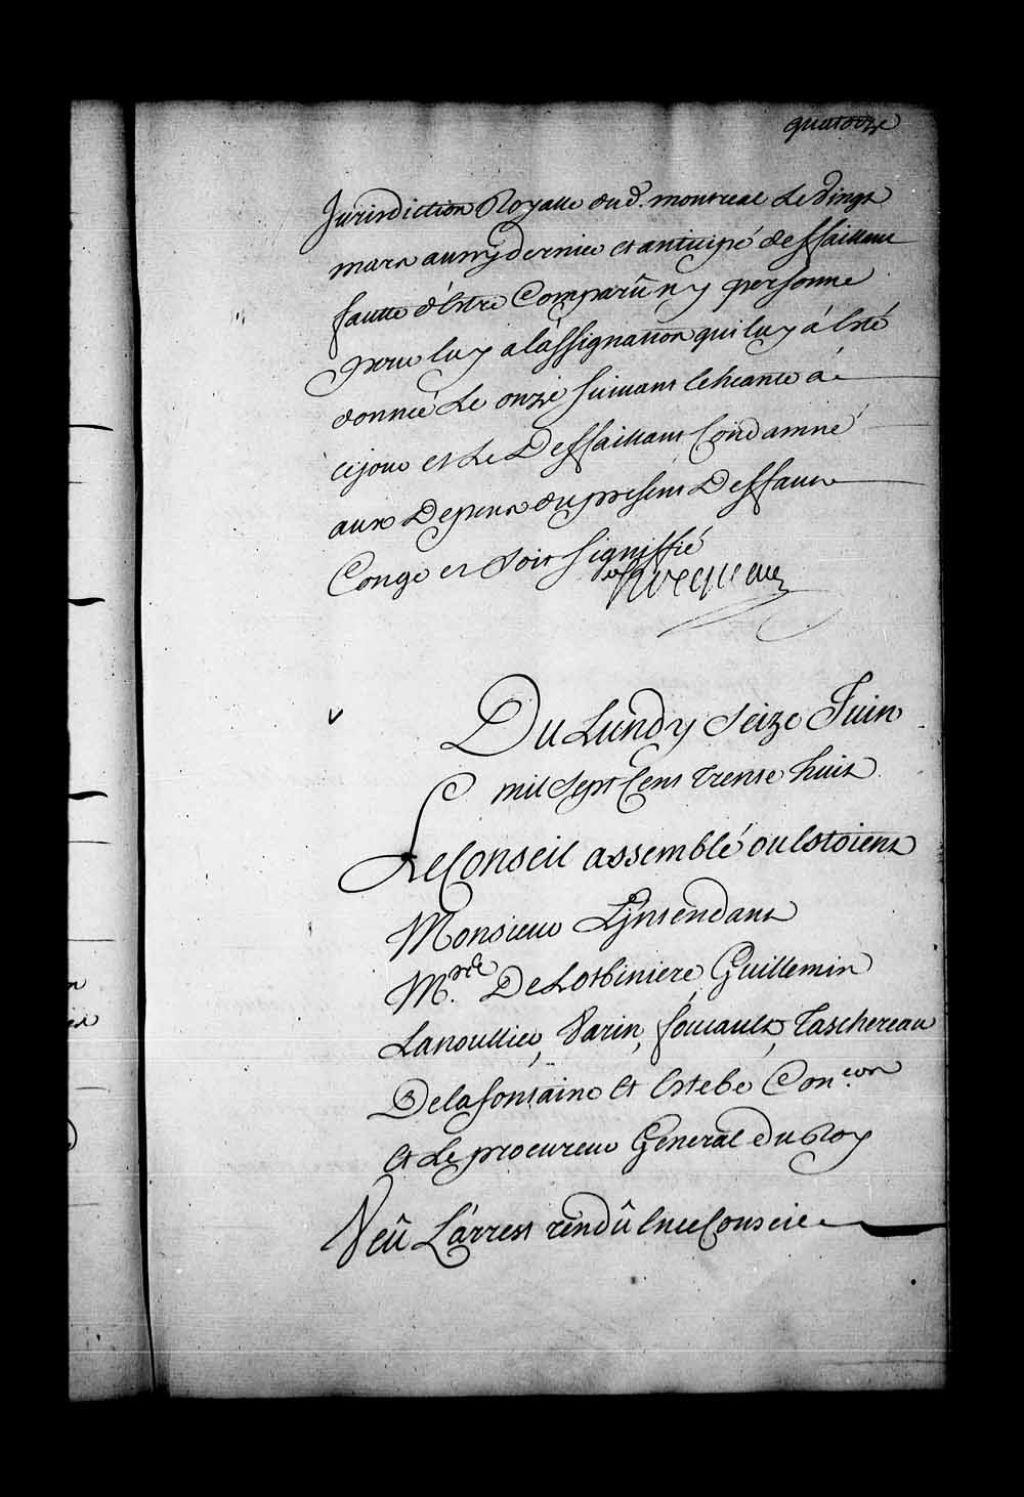 quatorze
Jurisdiction Royalle dud. montreal Le vingt
mars aussy dernier et anticipé deffaillant
fautte d'Estre Comparû ny personne
pour luy a l'assignation qui luy á Esté
donneé Le onze suivant lecheante á
cejour et Le Deffaillant Condamné
aux Depens du present Deffaut
Congé et soit signiffié
hocquart
Du Lundy seize Juin
mil sept Cent trente huit
Le Conseil assemblé ou Estoient
Monsieur L'Jntendant
M.rs De Lotbiniere, Guillemin
Lanoullier, Varin, foucault, Taschereau
Delafontaine Et Estebe Con.ers
Et Le procureur General du Roy
Veû L'arrest rendû En ce Conseil